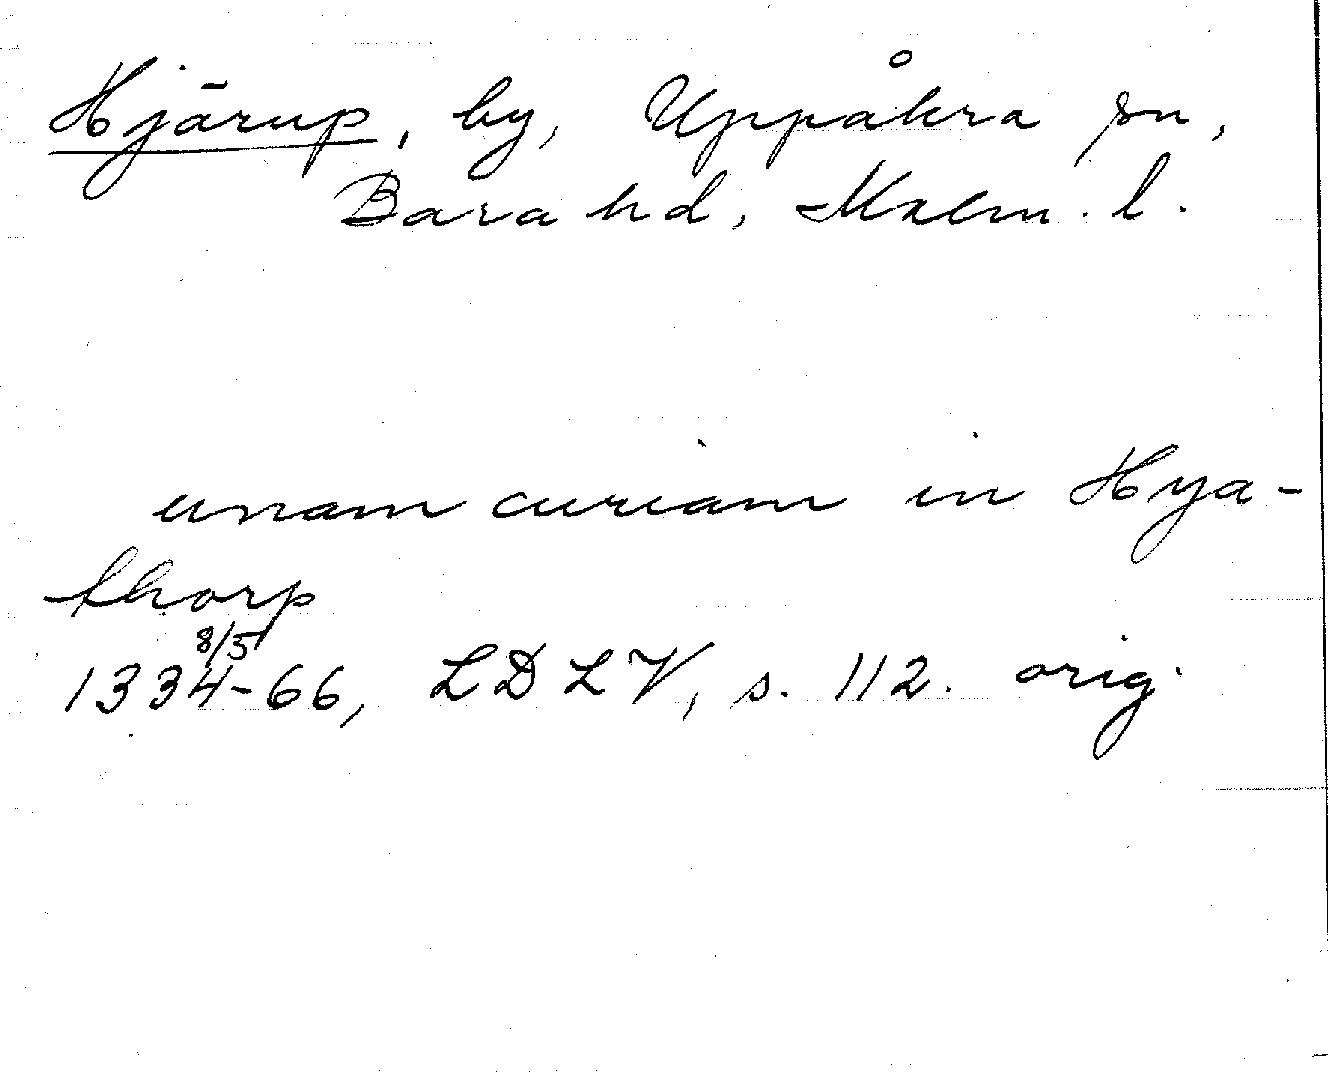 Hjärup, by, Uppåkra sn,
Bara hd, Malm. l.
unam curiam in Hya-
thorp
8/5
1334-66, LDLV, s. 112. orig.